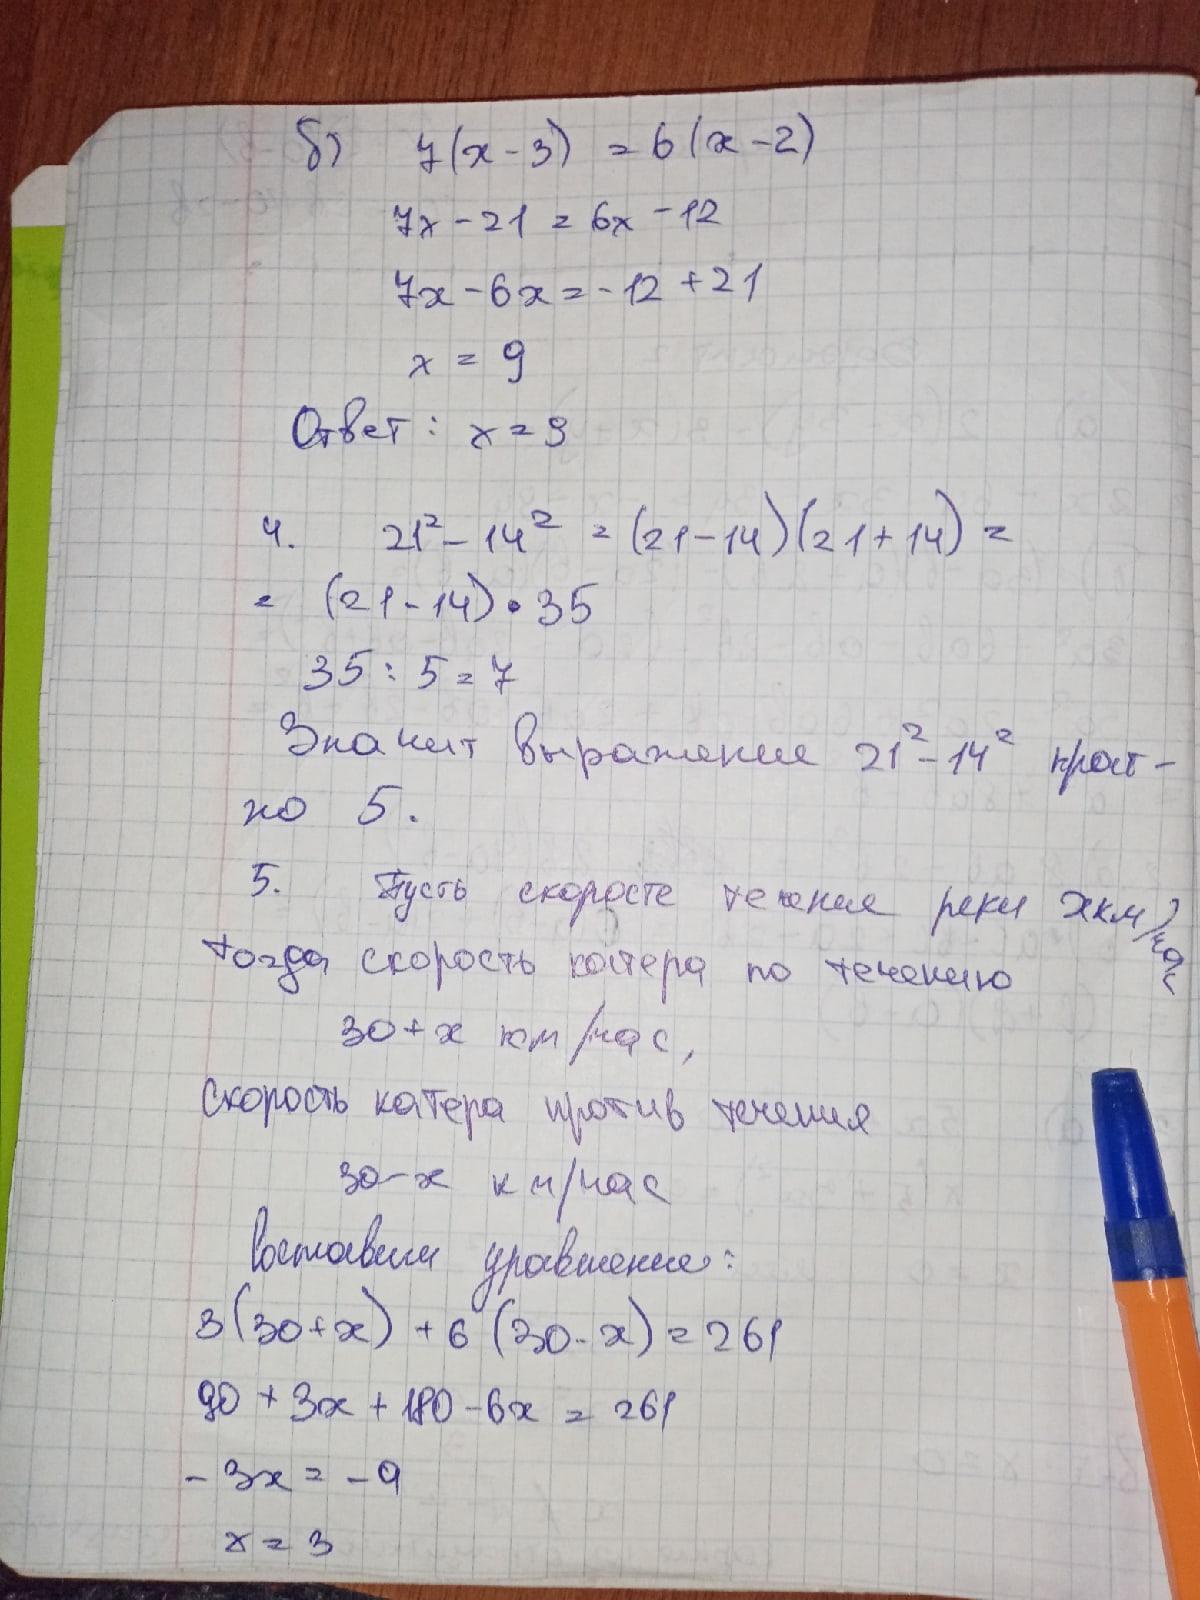 б) 7(x-3) = 6(x-2)
7x-21 = 6x-12
7x-6x=-12+21
x = 9
Ответ: x=9
4. 21²-14² = (21-14)(21+14) =
= (21-14)•35
35:5=7
Значит выражение 21²-14² крат-
но 5.
5. Пусть скорость течения реки x км/час
тогда скорость катера по течению
30+x км/час,
скорость катера против течения
30-x км/час
Составим уравнение:
3(30+x)+6(30-x)=261
90+3x+180-6x=261
-3x=-9
x=3